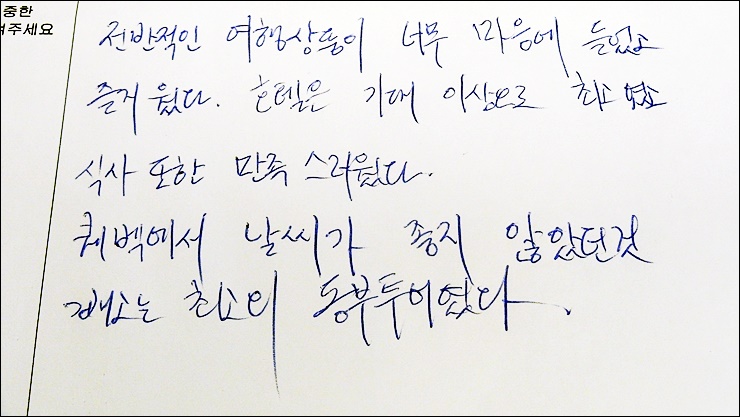 중한
여주세요
전반적인 여행상품이 너무 마음에 들었고
즐거웠다. 호텔은 기대 이상으로 최고였고
식사 또한 만족스러웠다.
퀘벡에서 날씨가 좋지 않았던것
빼고는 최고의 동부투어였다.